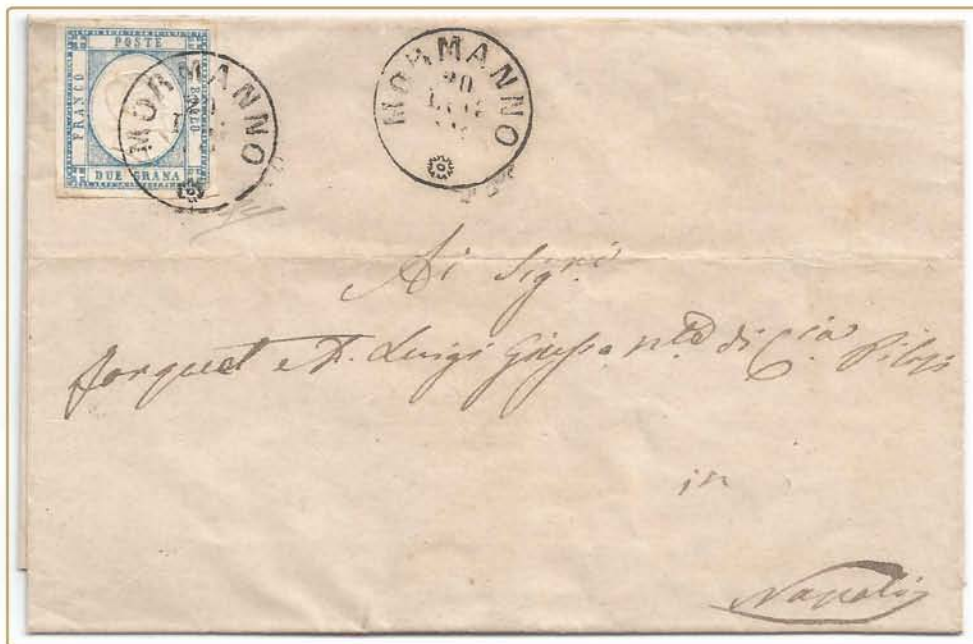 POSTE
FRANCO
BOLLO
DUE GRANA
MORMANNO
MORMANNO
20
LUG
Ai Sigri
Forquet e D. Luigi Giusso di Cia
in
Napoli